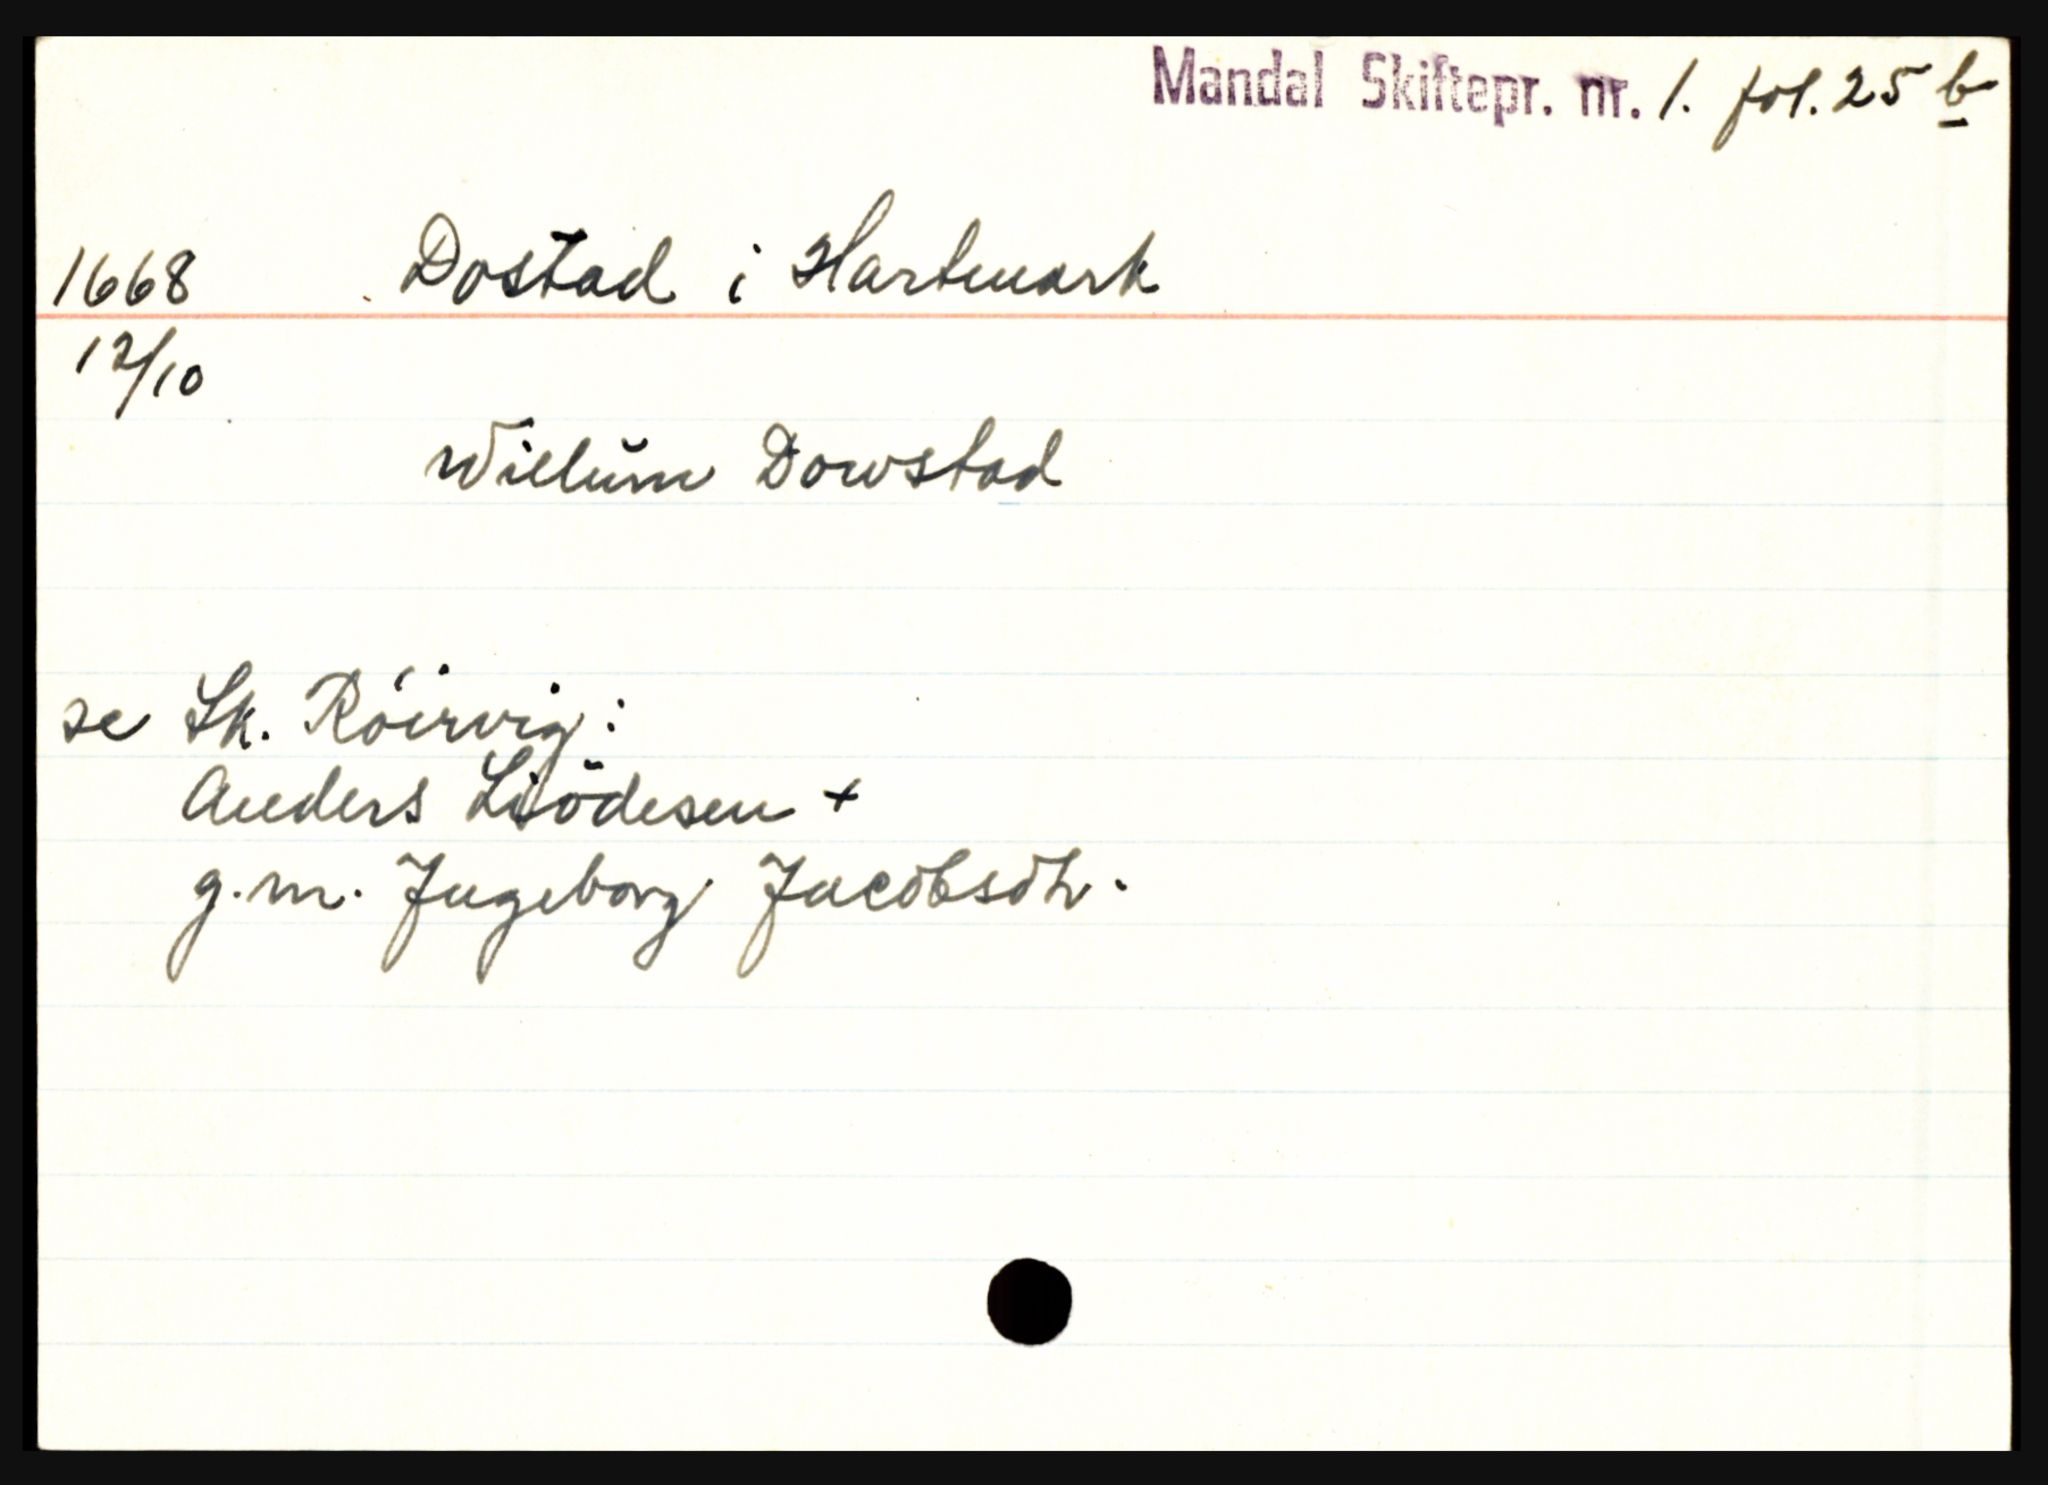 Mandal Skiftepr. nr. 1. fol. 25 b
1668 Dostad i Hartmark
12/10
Willum Dowstad
se Sk. Röirvig:
Anders Liödesen +
g.m. Ingeborg Jacobsdtr.